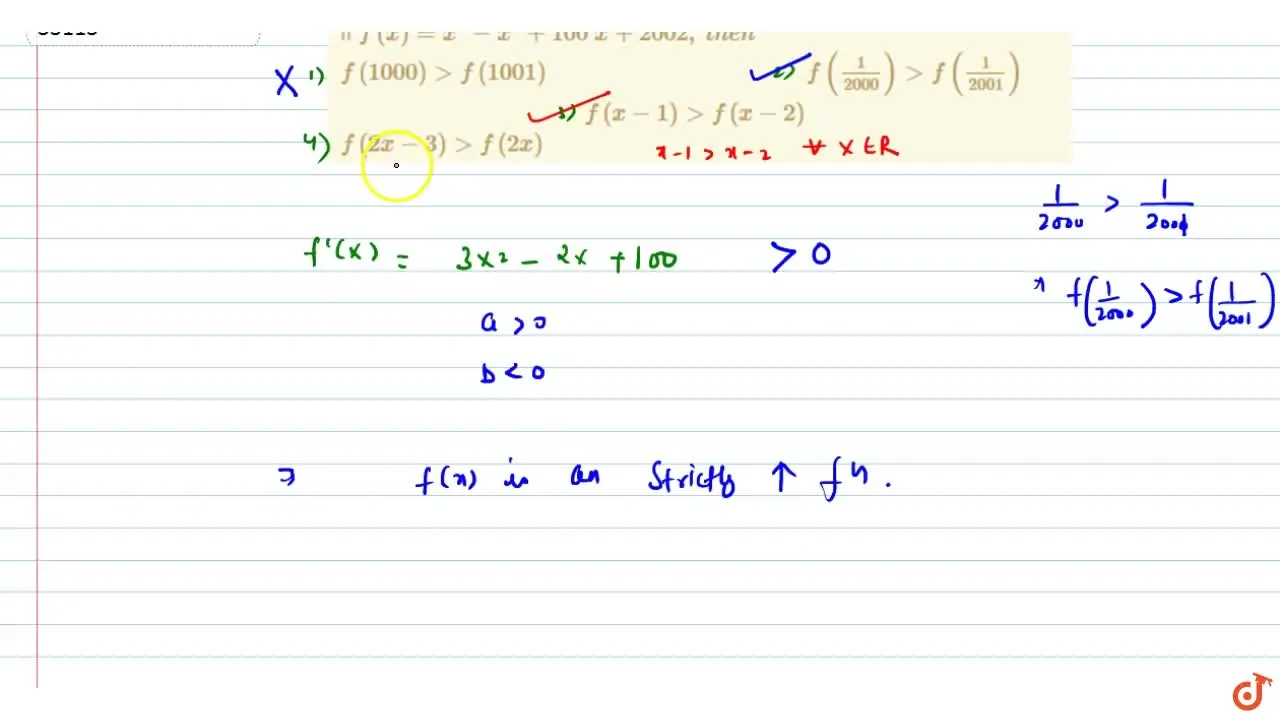 If f(x) = x³ − x² + 100x + 2002, then
X 1) f(1000) > f(1001)
2) f(1/2000) > f(1/2001)
3) f(x − 1) > f(x − 2)
4) f(2x − 3) > f(2x)
x-1 > x-2 ∀ x ∈ R
1/2000 > 1/2001
f'(x) = 3x² − 2x + 100 > 0
f(1/2000) > f(1/2001)
a > 0
D < 0
⇒ f(x) is an strictly ↑ fn.